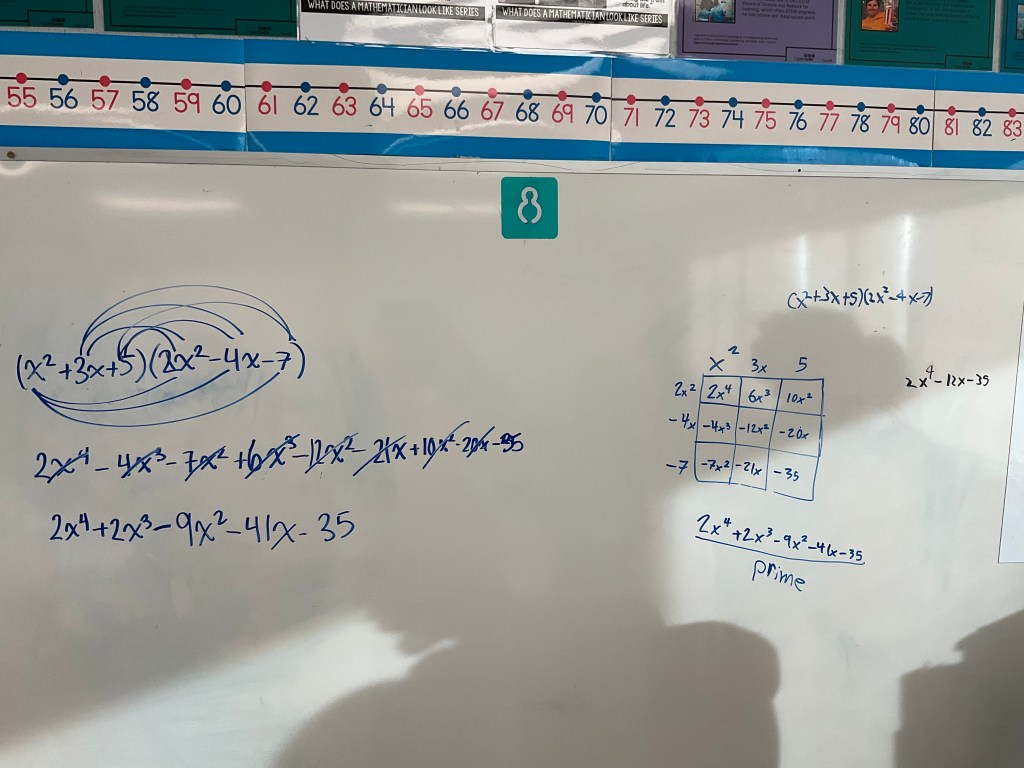 WHAT DOES A MATHEMATICIAN LOOK LIKE SERIES
WHAT DOES A MATHEMATICIAN LOOK LIKE SERIES
about life.
55 56 57 58 59 60 61 62 63 64 65 66 67 68 69 70 71 72 73 74 75 76 77 78 79 80 81 82 83
8
(x²+3x+5)(2x²-4x-7)
2x⁴-4x³-7x²+6x³-12x²-21x+10x²-20x-35
2x⁴+2x³-9x²-41x-35
(x²+3x+5)(2x²-4x-7)
x² 3x 5
2x² 2x⁴ 6x³ 10x²
-4x -4x³ -12x² -20x
-7 -7x² -21x -35
2x⁴+2x³-9x²-41x-35
prime
2x⁴-12x-35